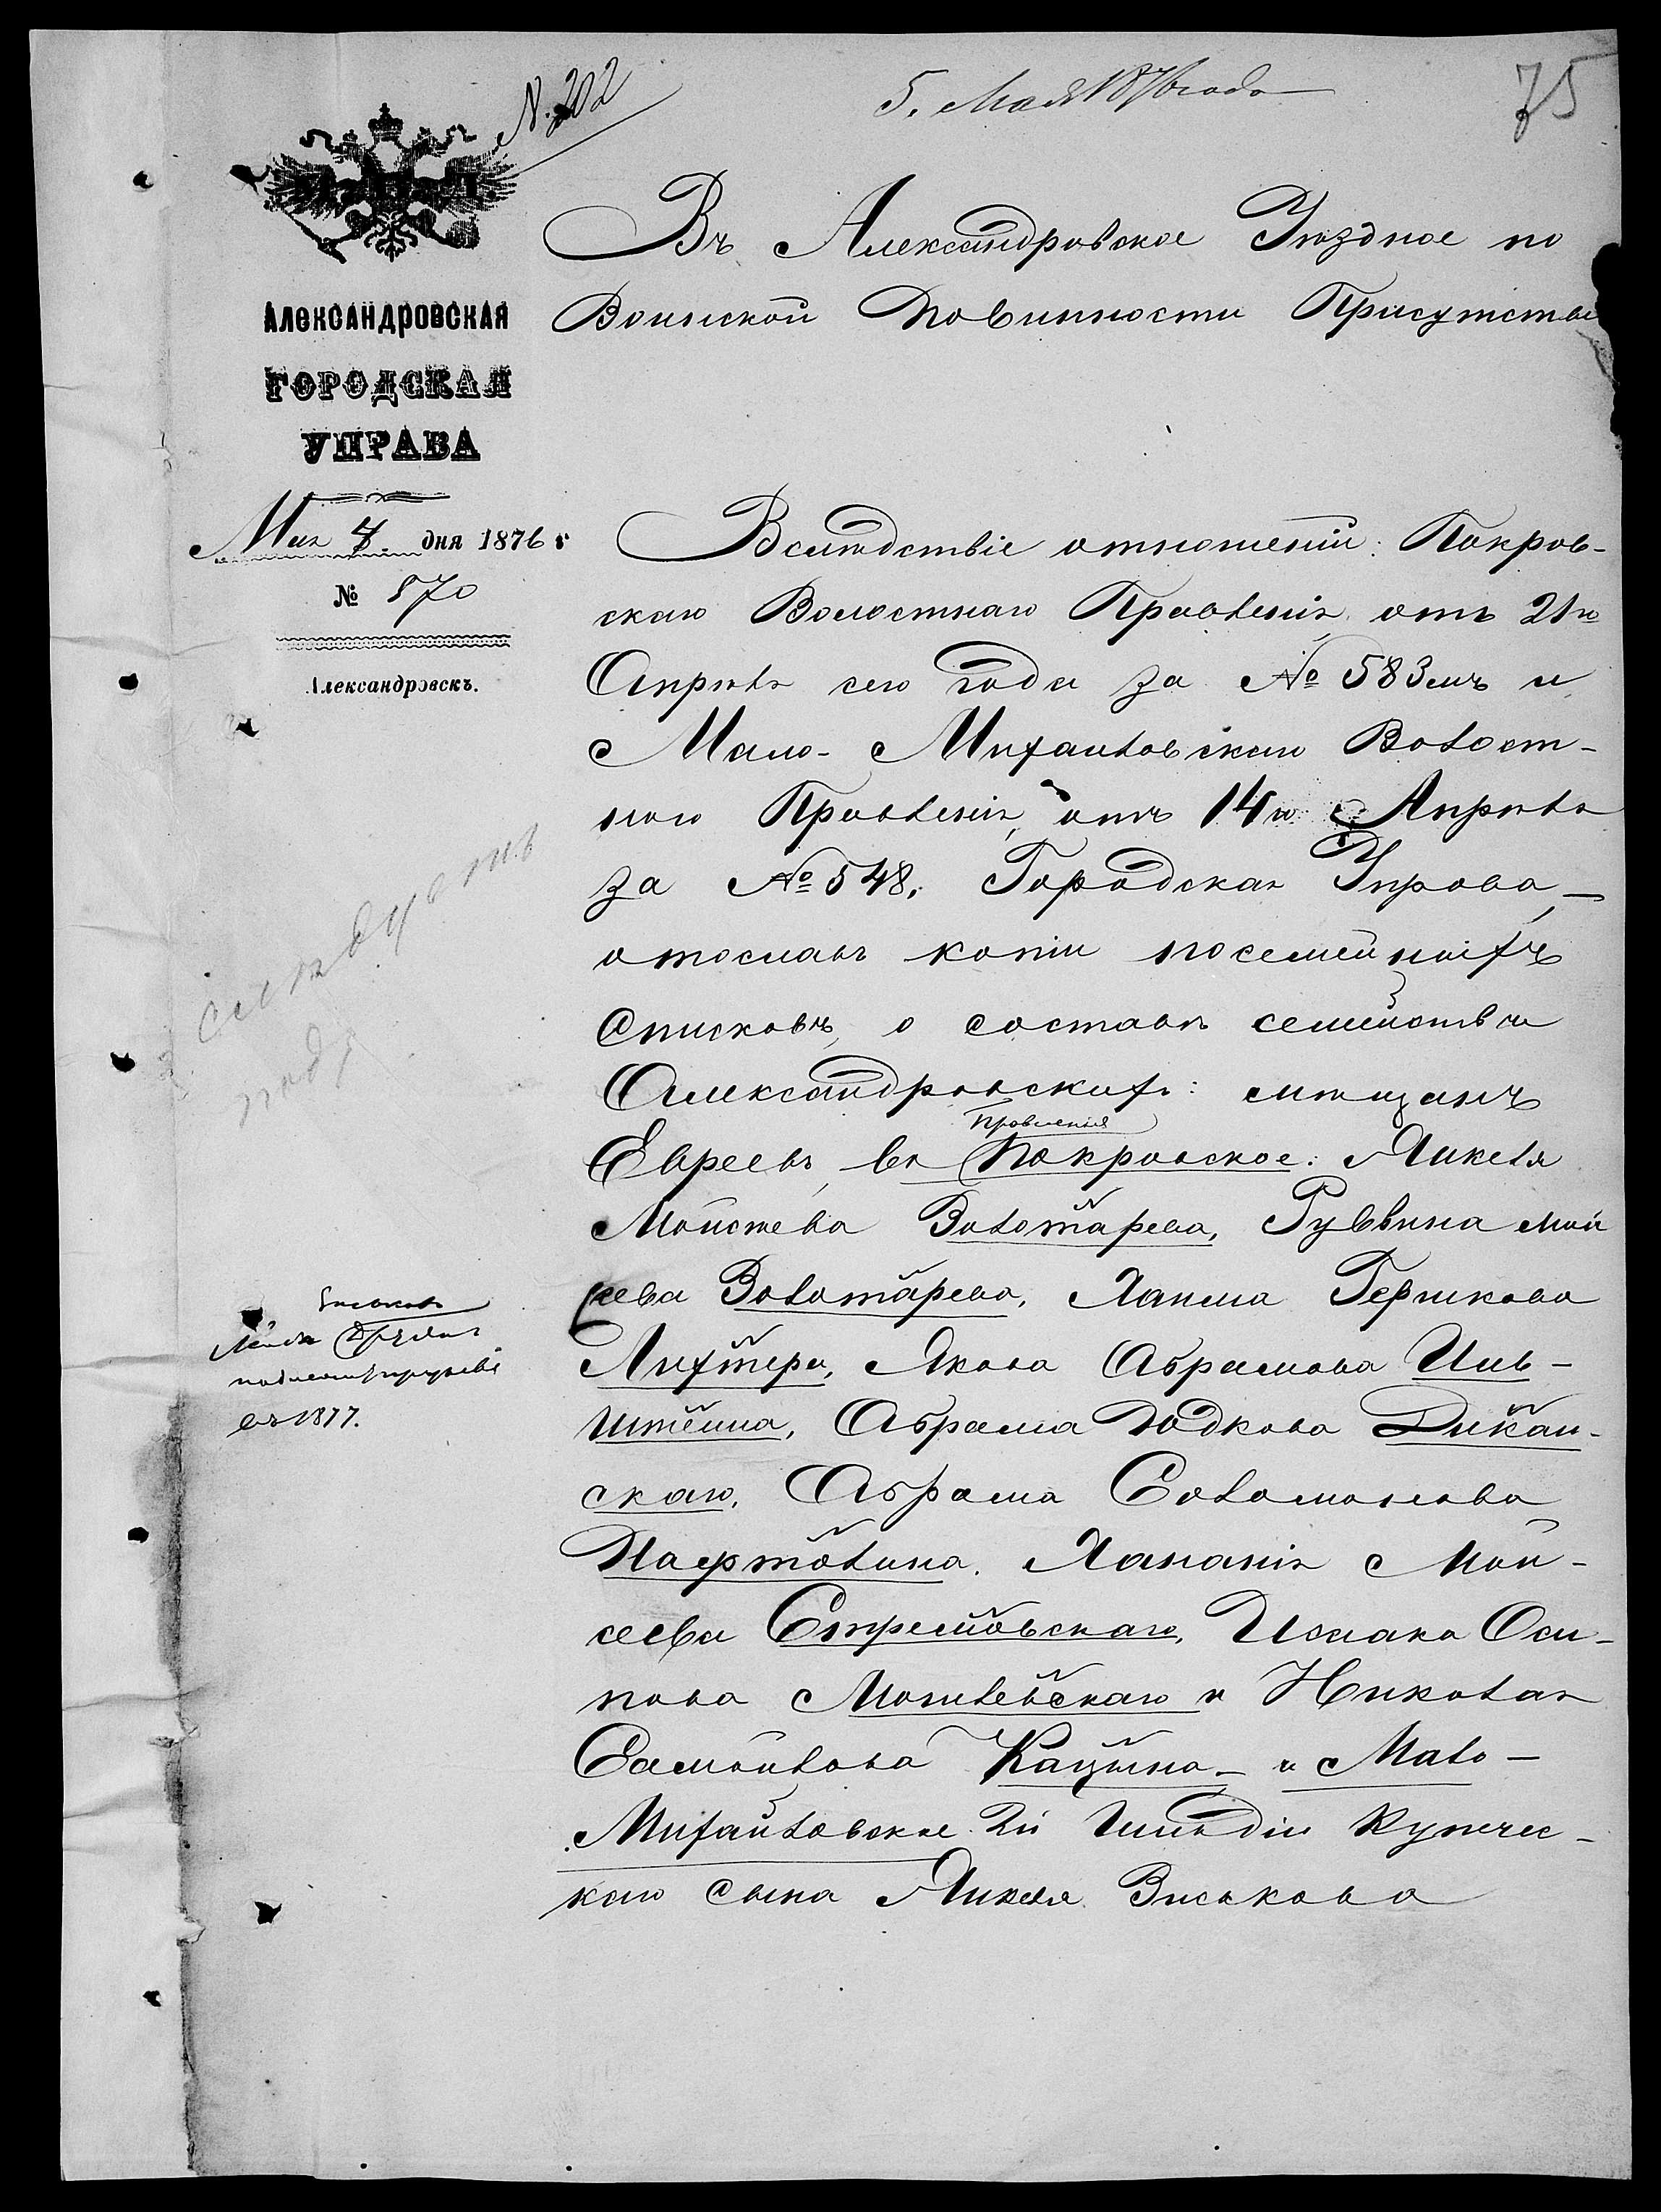 N. 202
5. Мая 1876 года
75
Александровская
ГОРОДСКАЯ
УПРАВА
Мая 4 дня 1876 г
№ 870
Александровскъ.
Въ Александровское Уѣздное по
Воинской Повинности Присутствіе
Вслѣдствіе отношеній: Покров-
скаго Волостнаго Правленія, отъ 21го
Апрѣля сего года за № 583мъ и
Мало-Михайловскаго Волост-
ного Правленія, отъ 14го Апрѣля
за № 548, Городская Управа,—
отославъ копіи посемейныхъ
списковъ, о составѣ семейства
Александровскихъ: мѣщанъ
Евреевъ, въ Покровское: Янкеля
Правленія
Мойсеева Золотарева, Руввина Мой
сеева Золотарева, Хаима Гершкова
Лихтера, Якова Абрамова Иль-
штейна, Абрама Юдкова Дикан-
скаго, Абрама Соломонова
Нафтолина, Ханания Мой-
сеева Стремовскаго, Исаака Оси-
пова Могилевскаго и Николая
Самойлова Кацына — и Мало-
Михайловское 2й Гильдіи Купечес-
каго сына Янкеля Зиськова
слѣдуетъ
Зиськовъ
въ 1877.